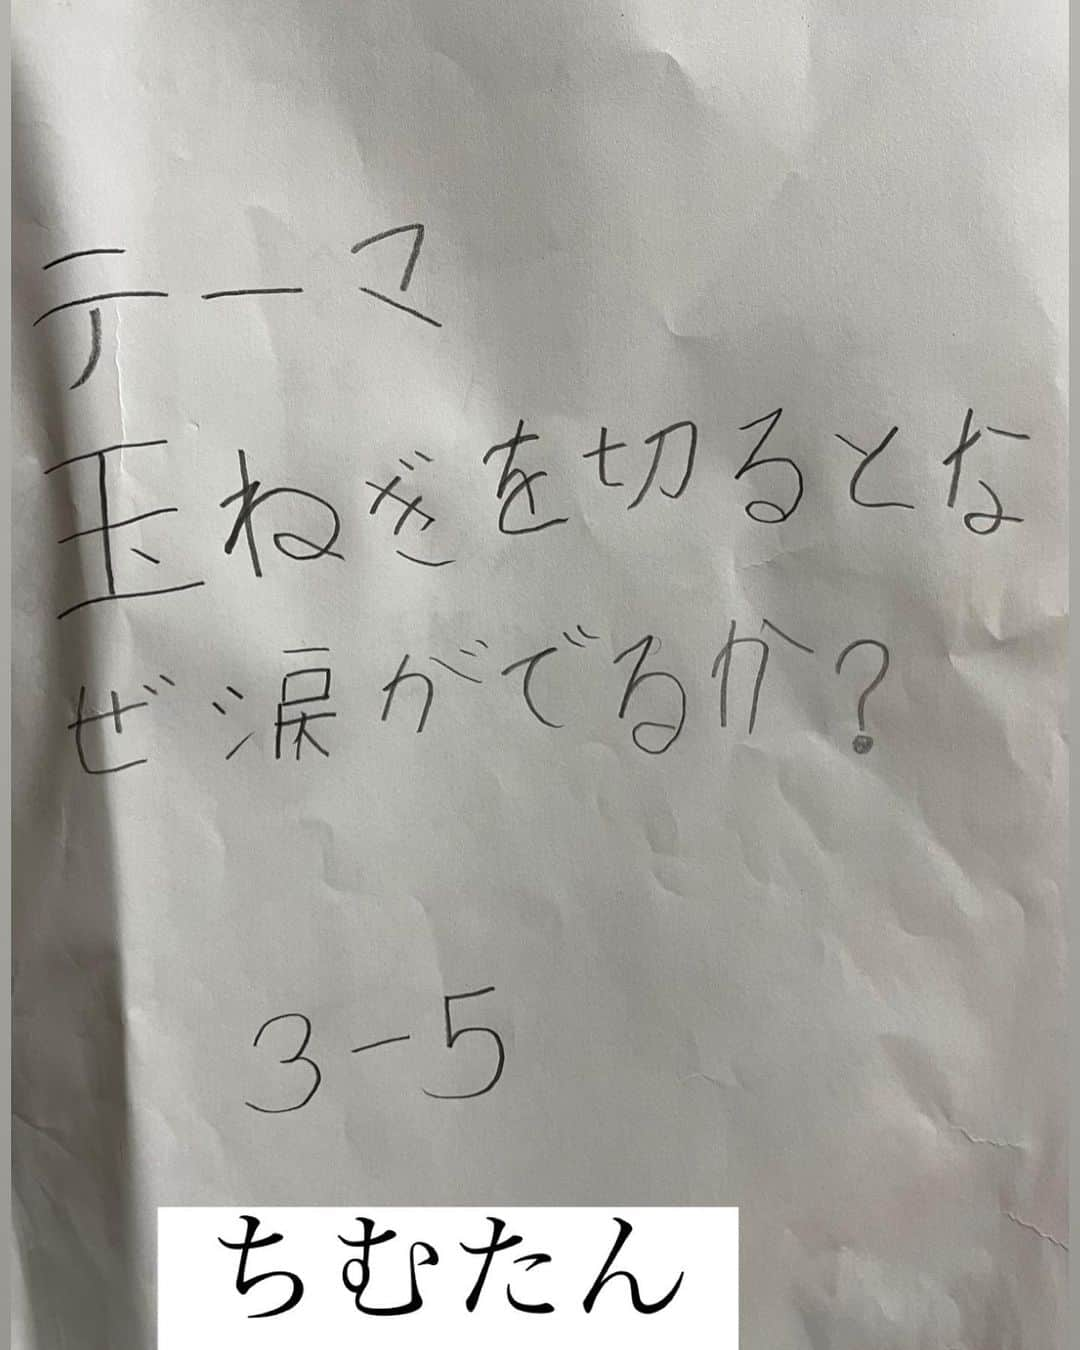 テーマ
玉ねぎを切るとな
ぜ涙がでるか?
3-5
ちむたん